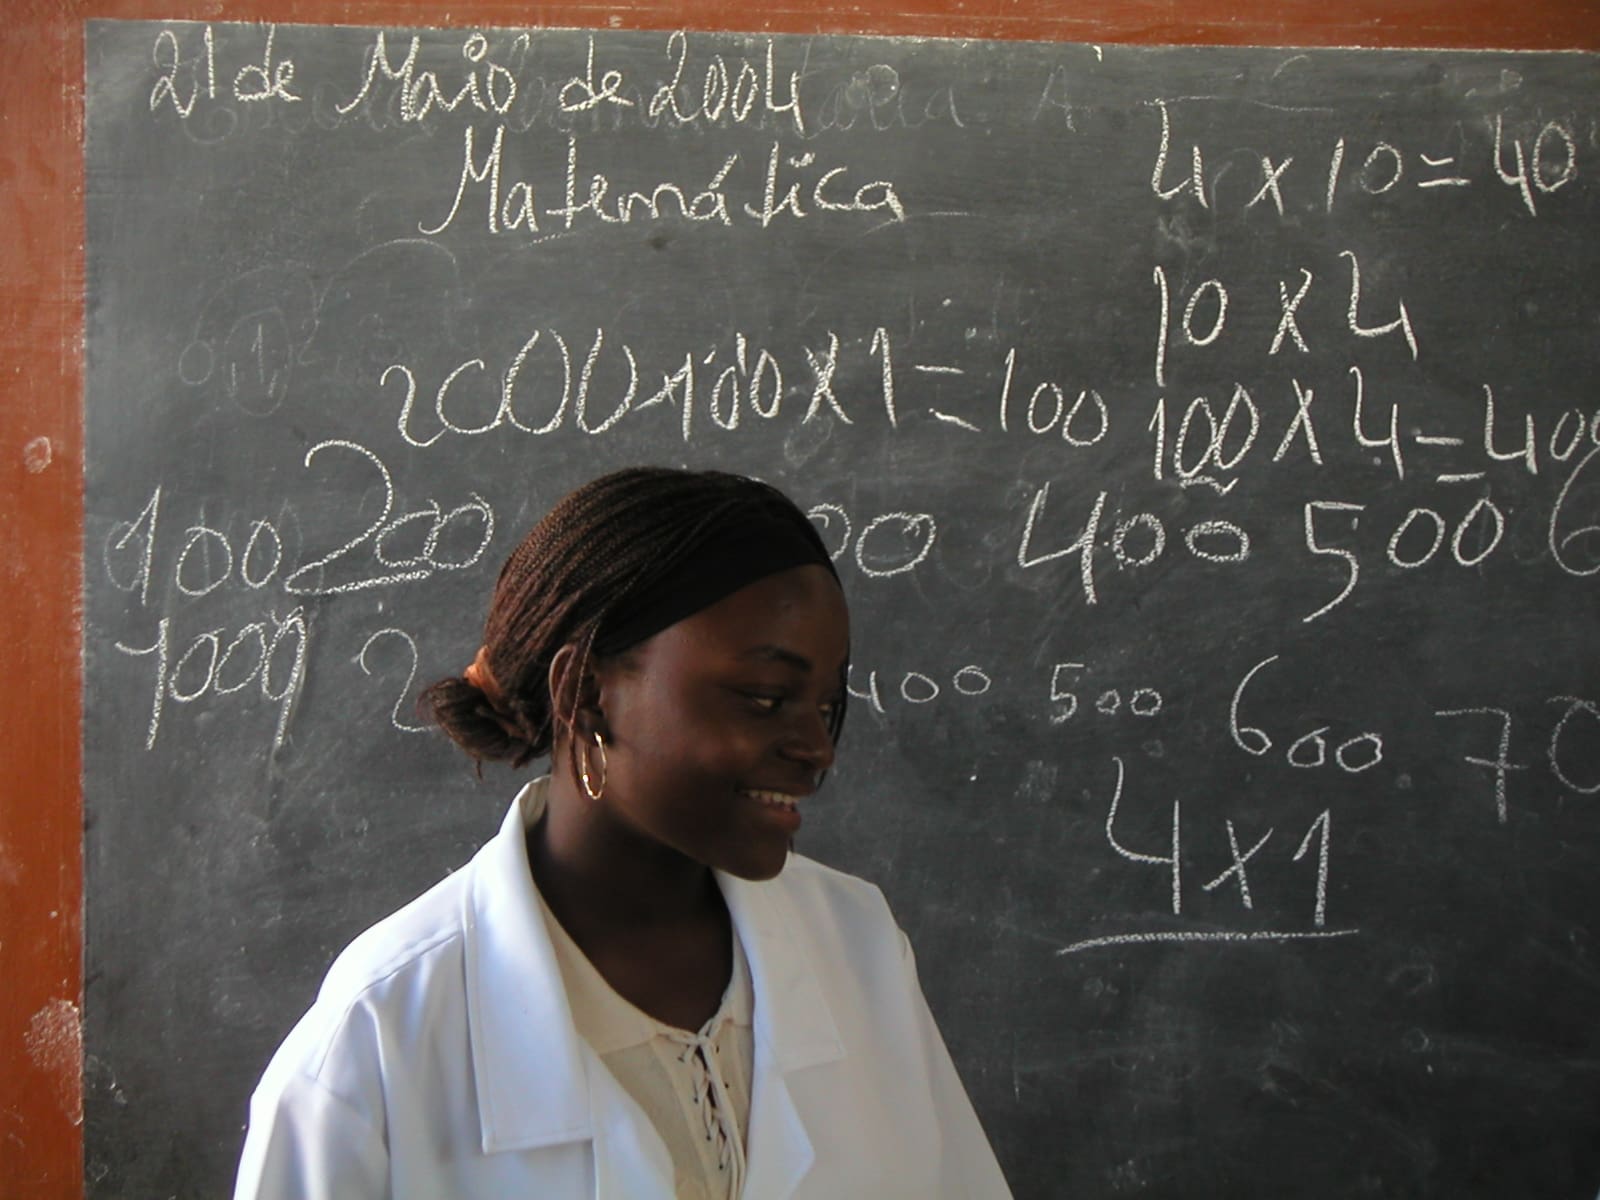 21 de Maio de 2004
Matemática
4 x 10 = 40
10 x 4
100 x 1 = 100
100 x 4 = 400
100 200 00 400 500 6
1000 2 400 500 600 70
4 x 1